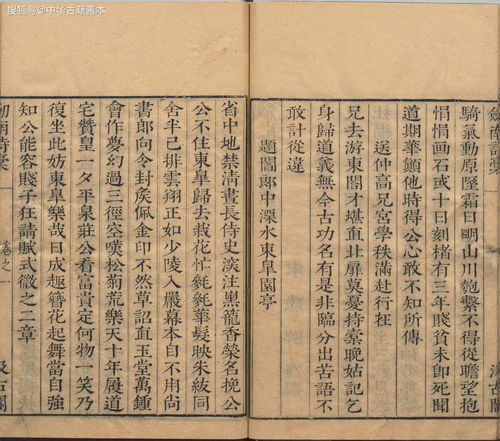 搜狐号@中华古籍善本
劍南詩稾
騎氣動原隰霜日明山川匏繫不得從瞻望抱
悁悁画石或十日刻楮有三年賤貧未卽死聞
道期華顚他時得公心敢不知所傳
送仲高兄宮學秩滿赴行在
兄去游東閤才堪直北扉莫憂持橐晚姑記乞
身歸道義無今古功名有是非臨分出苦語不
敢計從違
題閻郎中溧水東皐園亭
省中地禁淸晝長侍史深注熏籠香榮名挽公
公不住東皐歸去栽花忙毿毿華髮映朱紱同
舍半已排雲翔正如少陵入嚴幕本自不用尚
書郎向令封矦佩金印不然草詔直玉堂萬鍾
會作夢幻過三徑空嘆松菊荒樂天十年履道
宅贊皇一夕平泉莊公看富貴定何物一笑乃
復坐此妨東皐樂哉日成趣簪花起舞當自強
知公能容賤子狂請賦式微之二章
劍南詩稾 卷之一 汲古閣